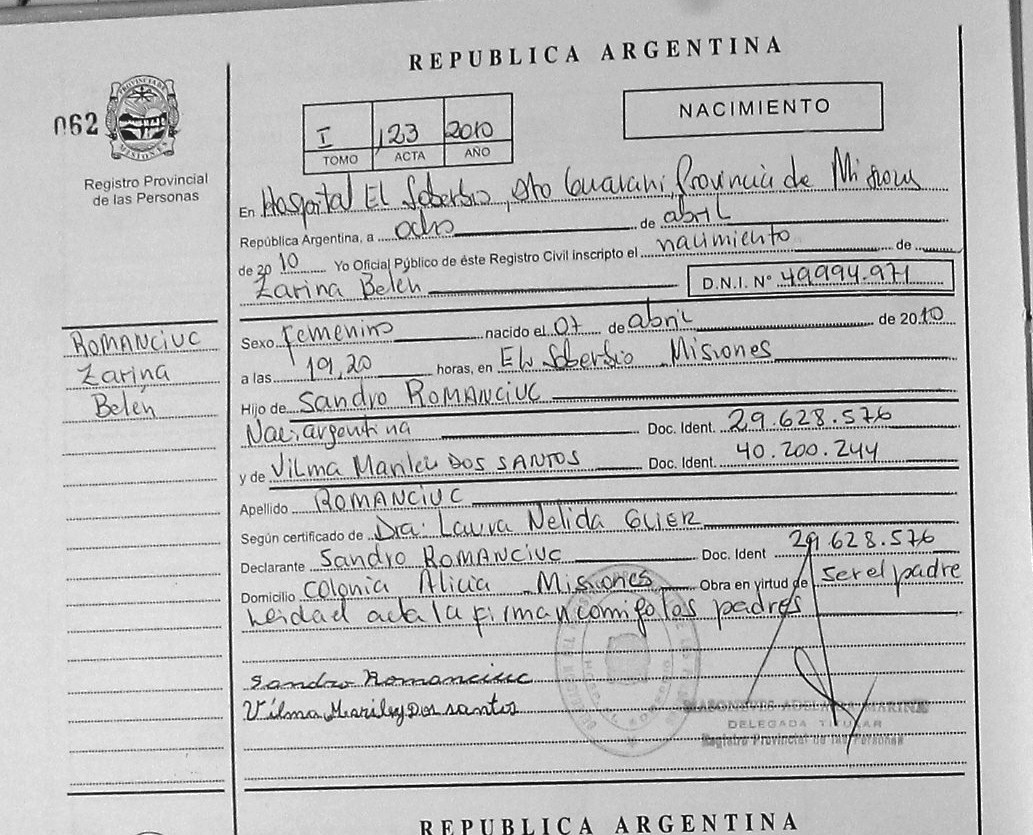 REPUBLICA ARGENTINA
062
PROVINCIA DE
MISIONES
Registro Provincial
de las Personas
I 123 2010
TOMO ACTA AÑO
NACIMIENTO
En Hospital El Soberbio, Dto Guaraní Provincia de Misiones
República Argentina, a ocho de abril
de 2010 Yo Oficial Público de éste Registro Civil inscripto el nacimiento de
Zarina Belén D.N.I. Nº 49994.971
ROMANCIUC
Zarina
Belén
Sexo Femenino nacido el 07 de abril de 2010
a las 19,20 horas, en El Soberbio Misiones
Hijo de Sandro ROMANCIUC
Nac. argentina Doc. Ident. 29.628.576
y de Vilma DOS SANTOS Doc. Ident. 40.200.244
Apellido ROMANCIUC
Según certificado de Dra. Laura Nelida GLIER
Declarante Sandro ROMANCIUC Doc. Ident 29.628.576
Domicilio Colonia Alicia Misiones Obra en virtud de ser el padre
leida el acta la firman comigo los padres
Sandro Romanciuc
Vilma Mariley Dos santos
DELEGADA TITULAR
Registro Provincial de las Personas
REPUBLICA ARGENTINA